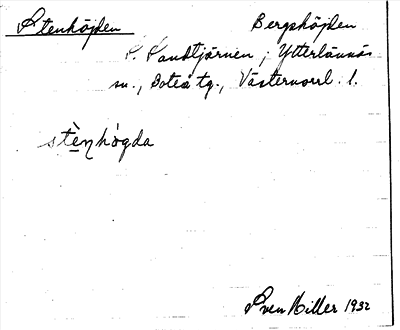 Stenhöjden Bergshöjden
P. Sandtjärnen, Ytterlännäs
sn., Boteå tg., Västernorrl. l.
stènhògda
Sven Hiller 1932